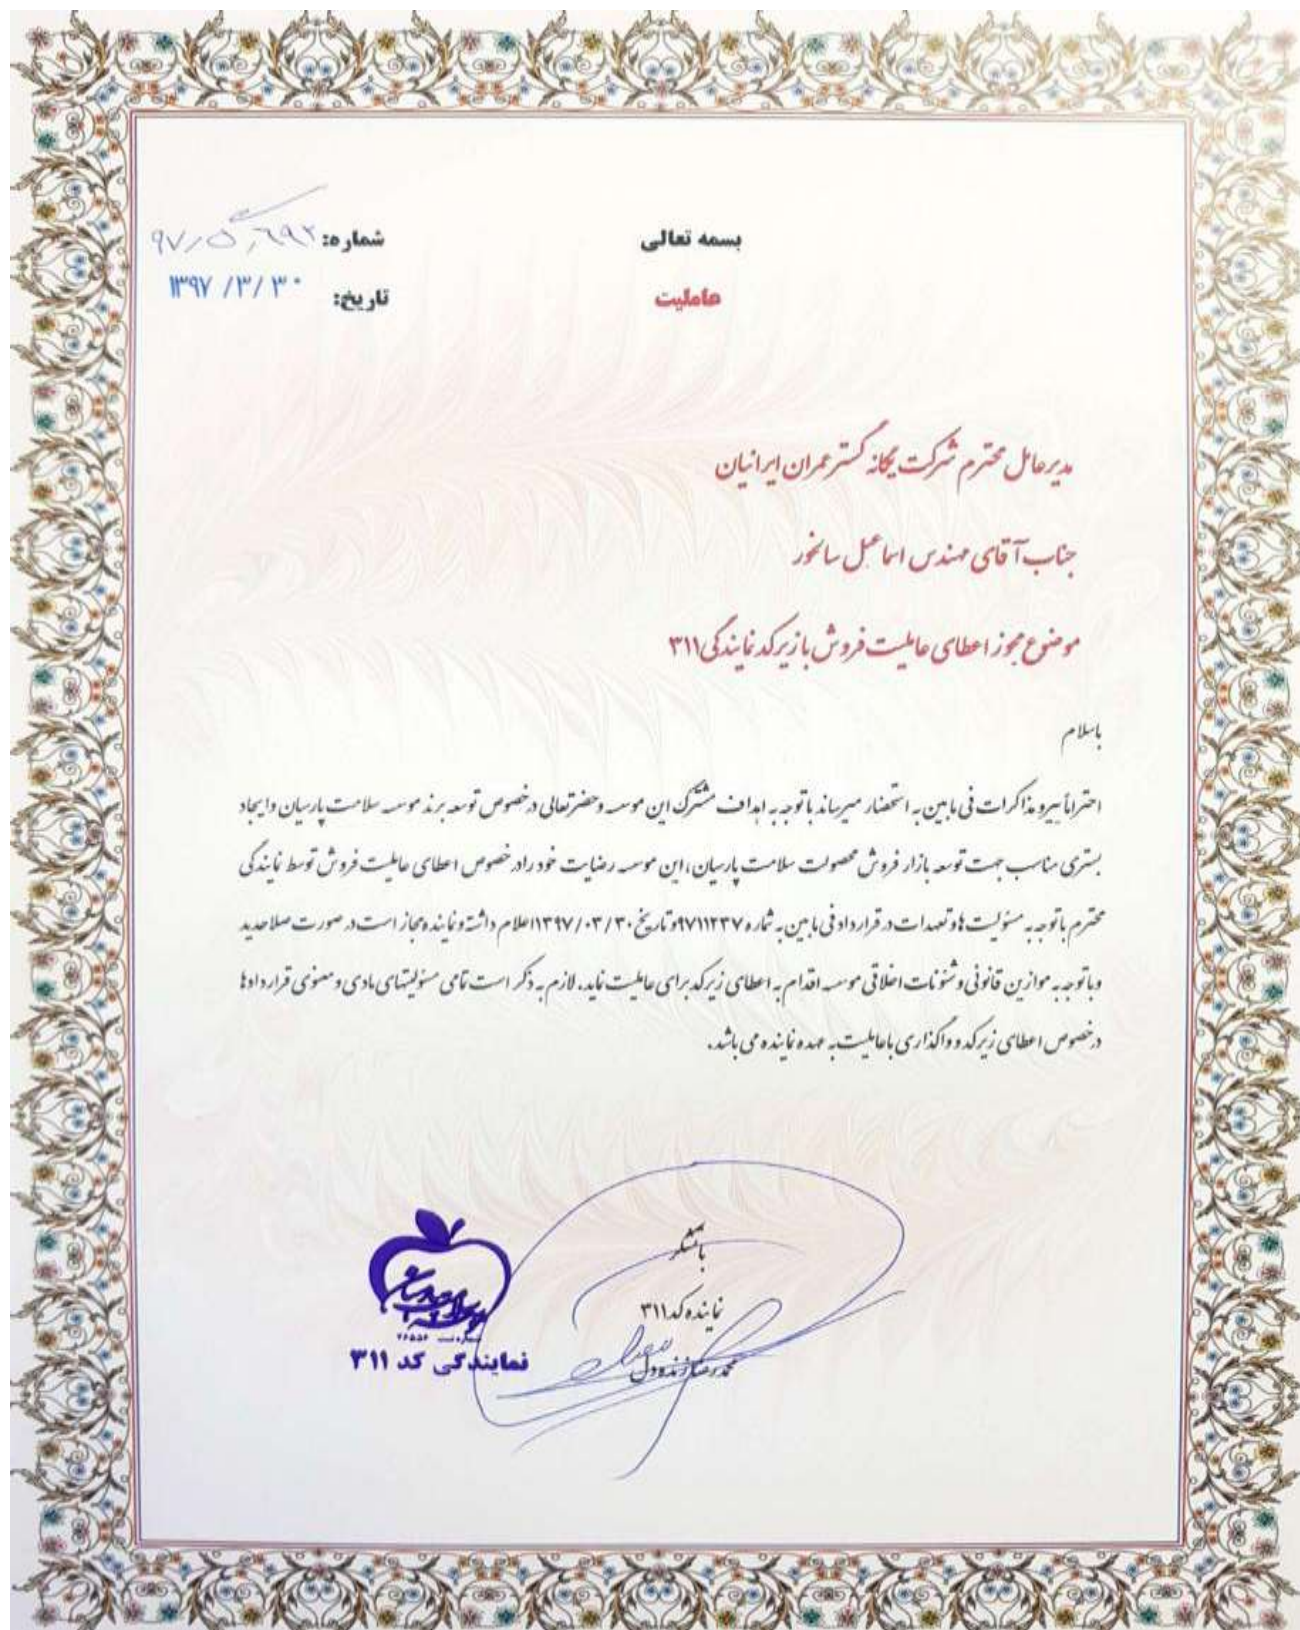 بسمه تعالی
شماره: ۹۷/گ/۶۹۲
عاملیت
تاریخ: ۱۳۹۷/۳/۳۰
مدیرعامل محترم شرکت یگانه گستر عمران ایرانیان
جناب آقای مهندس اسماعیل سالخور
موضوع مجوز اعطای عاملیت فروش با زیرکد نمایندگی ۳۱۱
باسلام
احتراماً پیرو مذاکرات فی مابین به استحضار میرساند با توجه به اهداف مشترک این موسسه و حضرتعالی درخصوص توسعه برند موسسه سلامت پارسیان و ایجاد
بستری مناسب جهت توسعه بازار فروش محصولت سلامت پارسیان، این موسسه رضایت خود را در خصوص اعطای عاملیت فروش توسط نمایندگی
محترم با توجه به مسئولیت ها و تعهدات در قرارداد فی مابین به شماره ۹۷۱۱۲۳۷ و تاریخ ۱۳۹۷/۰۳/۳۰ اعلام داشته و نماینده مجاز است در صورت صلاحدید
و با توجه به موازین قانونی و شئونات اخلاقی موسسه اقدام به اعطای زیرکد برای عاملیت نماید. لازم به ذکر است تمامی مسئولیتهای مادی و معنوی قراردادها
درخصوص اعطای زیرکد و واگذاری با عاملیت به عهده نماینده می باشد.
باتشکر
نماینده کد ۳۱۱
محمدرضا زنده دل
شماره ثبت ۲۶۵۵۶
نمایندگی کد ۳۱۱